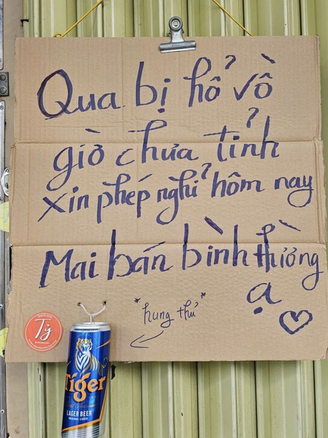 Qua bị hổ vồ
giờ chưa tỉnh
xin phép nghỉ hôm nay
Mai bán bình thường
ạ ♡
"hung thủ"
Tiger
LAGER BEER